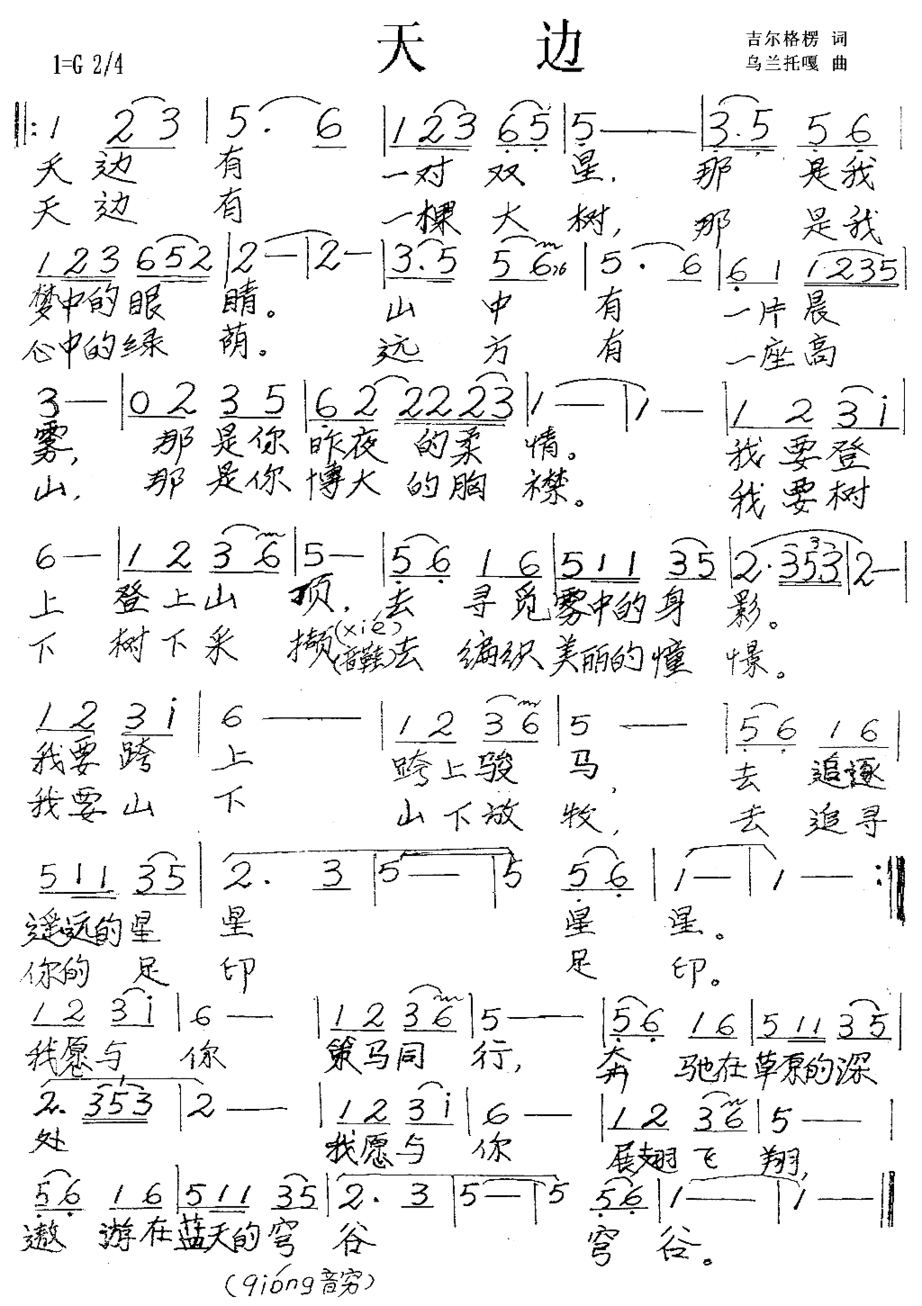 天 边
1=G 2/4
吉尔格楞 词
乌兰托嘎 曲
‖: 1 2 3 | 5 . 6 | 1 2 3 6 5 | 5 — — | 3 . 5 5 6 |
天 边 有 一对 双 星, 那 是我
天 边 有 一棵 大 树, 那 是我
1 2 3 6 5 2 | 2 — | 2 — | 3 . 5 5 6 | 5 . 6 | 6 1 1 2 3 5 |
梦中的眼 睛。 山 中 有 一片 晨
心中的绿 荫。 远 方 有 一座 高
3 — | 0 2 3 5 | 6 2 2 2 2 2 3 | 1 — | 1 — | 1 2 3 i |
雾, 那 是你 昨夜 的柔 情。 我要登
山, 那 是你 博大 的胸 襟。 我要树
6 — | 1 2 3 6 | 5 — | 5 6 1 6 | 5 1 1 3 5 | 2 . 3 5 3 | 2 —
3
上 登上山 顶, 去 寻觅 雾中的身 影。
下 树下采 撷(xié)(音鞋)去 编织 美丽的憧 憬。
1 2 3 i | 6 — — | 1 2 3 6 | 5 — | 5 6 1 6
我要跨 上 跨上骏 马, 去 追逐
我要山 下 山下放 牧, 去 追寻
5 1 1 3 5 | 2 . 3 | 5 — | 5 5 6 | 1 — | 1 — :‖
遥远的星 星 星 星。
你的 足 印 足 印。
1 2 3 i | 6 — | 1 2 3 6 | 5 — — | 5 6 1 6 | 5 1 1 3 5
我愿与 你 策马同 行, 奔 驰在草原的深
2 . 3 5 3 | 2 — | 1 2 3 i | 6 — | 1 2 3 6 | 5 —
处 我愿与 你 展翅飞 翔,
5 6 1 6 | 5 1 1 3 5 | 2 . 3 | 5 — | 5 5 6 | 1 — | 1 — ‖
遨 游在蓝天的穹 谷 穹 谷。
(qióng音穷)